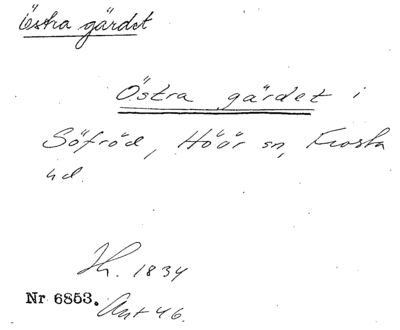 Östra gärdet
Östra gärdet i
Söfröd, Höör sn, Frosta
hd.
Jh. 1834
Nr 6853. Akt 46.